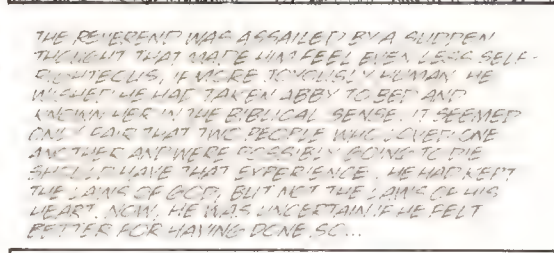 THE REVEREND WAS ASSAILED BY A SUDDEN
THOUGHT THAT MADE HIM FEEL EVEN LESS SELF-
RIGHTEOUS, IF MORE JOYOUSLY HUMAN. HE
WISHED HE HAD TAKEN ABBY TO BED AND
KNOWN HER IN THE BIBLICAL SENSE. IT SEEMED
ONLY FAIR THAT TWO PEOPLE WHO LOVED ONE
ANOTHER AND WERE POSSIBLY GOING TO DIE
SHOULD HAVE THAT EXPERIENCE. HE HAD KEPT
THE LAWS OF GOD, BUT NOT THE LAWS OF HIS
HEART. NOW, HE WAS UNCERTAIN IF HE FELT
BETTER FOR HAVING DONE SO...